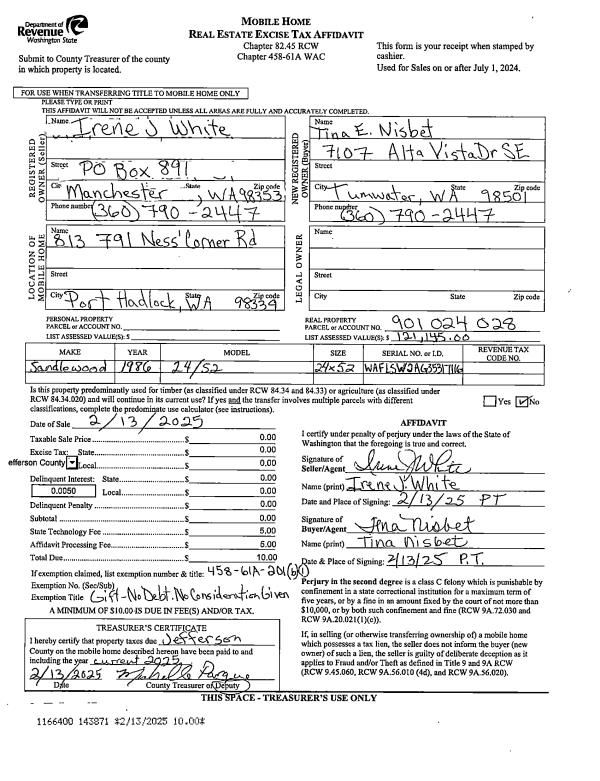 Department of
Revenue
Washington State
MOBILE HOME
REAL ESTATE EXCISE TAX AFFIDAVIT
Chapter 82.45 RCW
Chapter 458-61A WAC
Submit to County Treasurer of the county
in which property is located.
This form is your receipt when stamped by
cashier.
Used for Sales on or after July 1, 2024.
FOR USE WHEN TRANSFERRING TITLE TO MOBILE HOME ONLY
PLEASE TYPE OR PRINT
THIS AFFIDAVIT WILL NOT BE ACCEPTED UNLESS ALL AREAS ARE FULLY AND ACCURATELY COMPLETED.
REGISTERED OWNER (Seller)
Name Irene J White
Street PO Box 891
City Manchester, State WA Zip code 98353
Phone number (360) 790-2447
NEW REGISTERED OWNER (Buyer)
Name Tina E. Nisbet
7107 Alta Vista Dr SE
Street
City Tumwater, WA State Zip code 98501
Phone number (360) 790-2447
LOCATION OF MOBILE HOME
Name
813 791 Ness' Corner Rd
Street
City Port Hadlock, State WA Zip code 98339
LEGAL OWNER
Name
Street
City State Zip code
PERSONAL PROPERTY
PARCEL or ACCOUNT NO.
LIST ASSESSED VALUE(S): $
REAL PROPERTY
PARCEL or ACCOUNT NO. 901 024 028
LIST ASSESSED VALUE(S): $ 121,145.00
MAKE YEAR MODEL SIZE SERIAL NO. or I.D. REVENUE TAX CODE NO.
Sandlewood 1986 24/52 24x52
Is this property predominantly used for timber (as classified under RCW 84.34 and 84.33) or agriculture (as classified under
RCW 84.34.020) and will continue in its current use? If yes and the transfer involves multiple parcels with different
classifications, complete the predominate use calculator (see instructions).
Yes No
Date of Sale 2/13/2025
Taxable Sale Price $ 0.00
Excise Tax: State $ 0.00
efferson County Local $ 0.00
Delinquent Interest: State $ 0.00
0.0050 Local $ 0.00
Delinquent Penalty $ 0.00
Subtotal $ 0.00
State Technology Fee $ 5.00
Affidavit Processing Fee $ 5.00
Total Due $ 10.00
If exemption claimed, list exemption number & title: 458-61A-201(b)(1)
Exemption No. (Sec/Sub)
Exemption Title Gift-No Debt, No Consideration Given
A MINIMUM OF $10.00 IS DUE IN FEE(S) AND/OR TAX.
TREASURER'S CERTIFICATE
I hereby certify that property taxes due Jefferson
County on the mobile home described hereon have been paid to and
including the year current 2025.
2/13/2025
Date County Treasurer or Deputy
AFFIDAVIT
I certify under penalty of perjury under the laws of the State of
Washington that the foregoing is true and correct.
Signature of
Seller/Agent Irene J White
Name (print) Irene J. White
Date and Place of Signing: 2/13/25 PT
Signature of
Buyer/Agent Tina Nisbet
Name (print) Tina Nisbet
Date & Place of Signing: 2/13/25 P.T.
Perjury in the second degree is a class C felony which is punishable by
confinement in a state correctional institution for a maximum term of
five years, or by a fine in an amount fixed by the court of not more than
$10,000, or by both such confinement and fine (RCW 9A.72.030 and
RCW 9A.20.021(1)(c)).
If, in selling (or otherwise transferring ownership of) a mobile home
which possesses a tax lien, the seller does not inform the buyer (new
owner) of such a lien, the seller is guilty of deliberate deception as it
applies to Fraud and/or Theft as defined in Title 9 and 9A RCW
(RCW 9.45.060, RCW 9A.56.010 (4d), and RCW 9A.56.020).
THIS SPACE - TREASURER'S USE ONLY
1166400 143871 *2/13/2025 10.00*